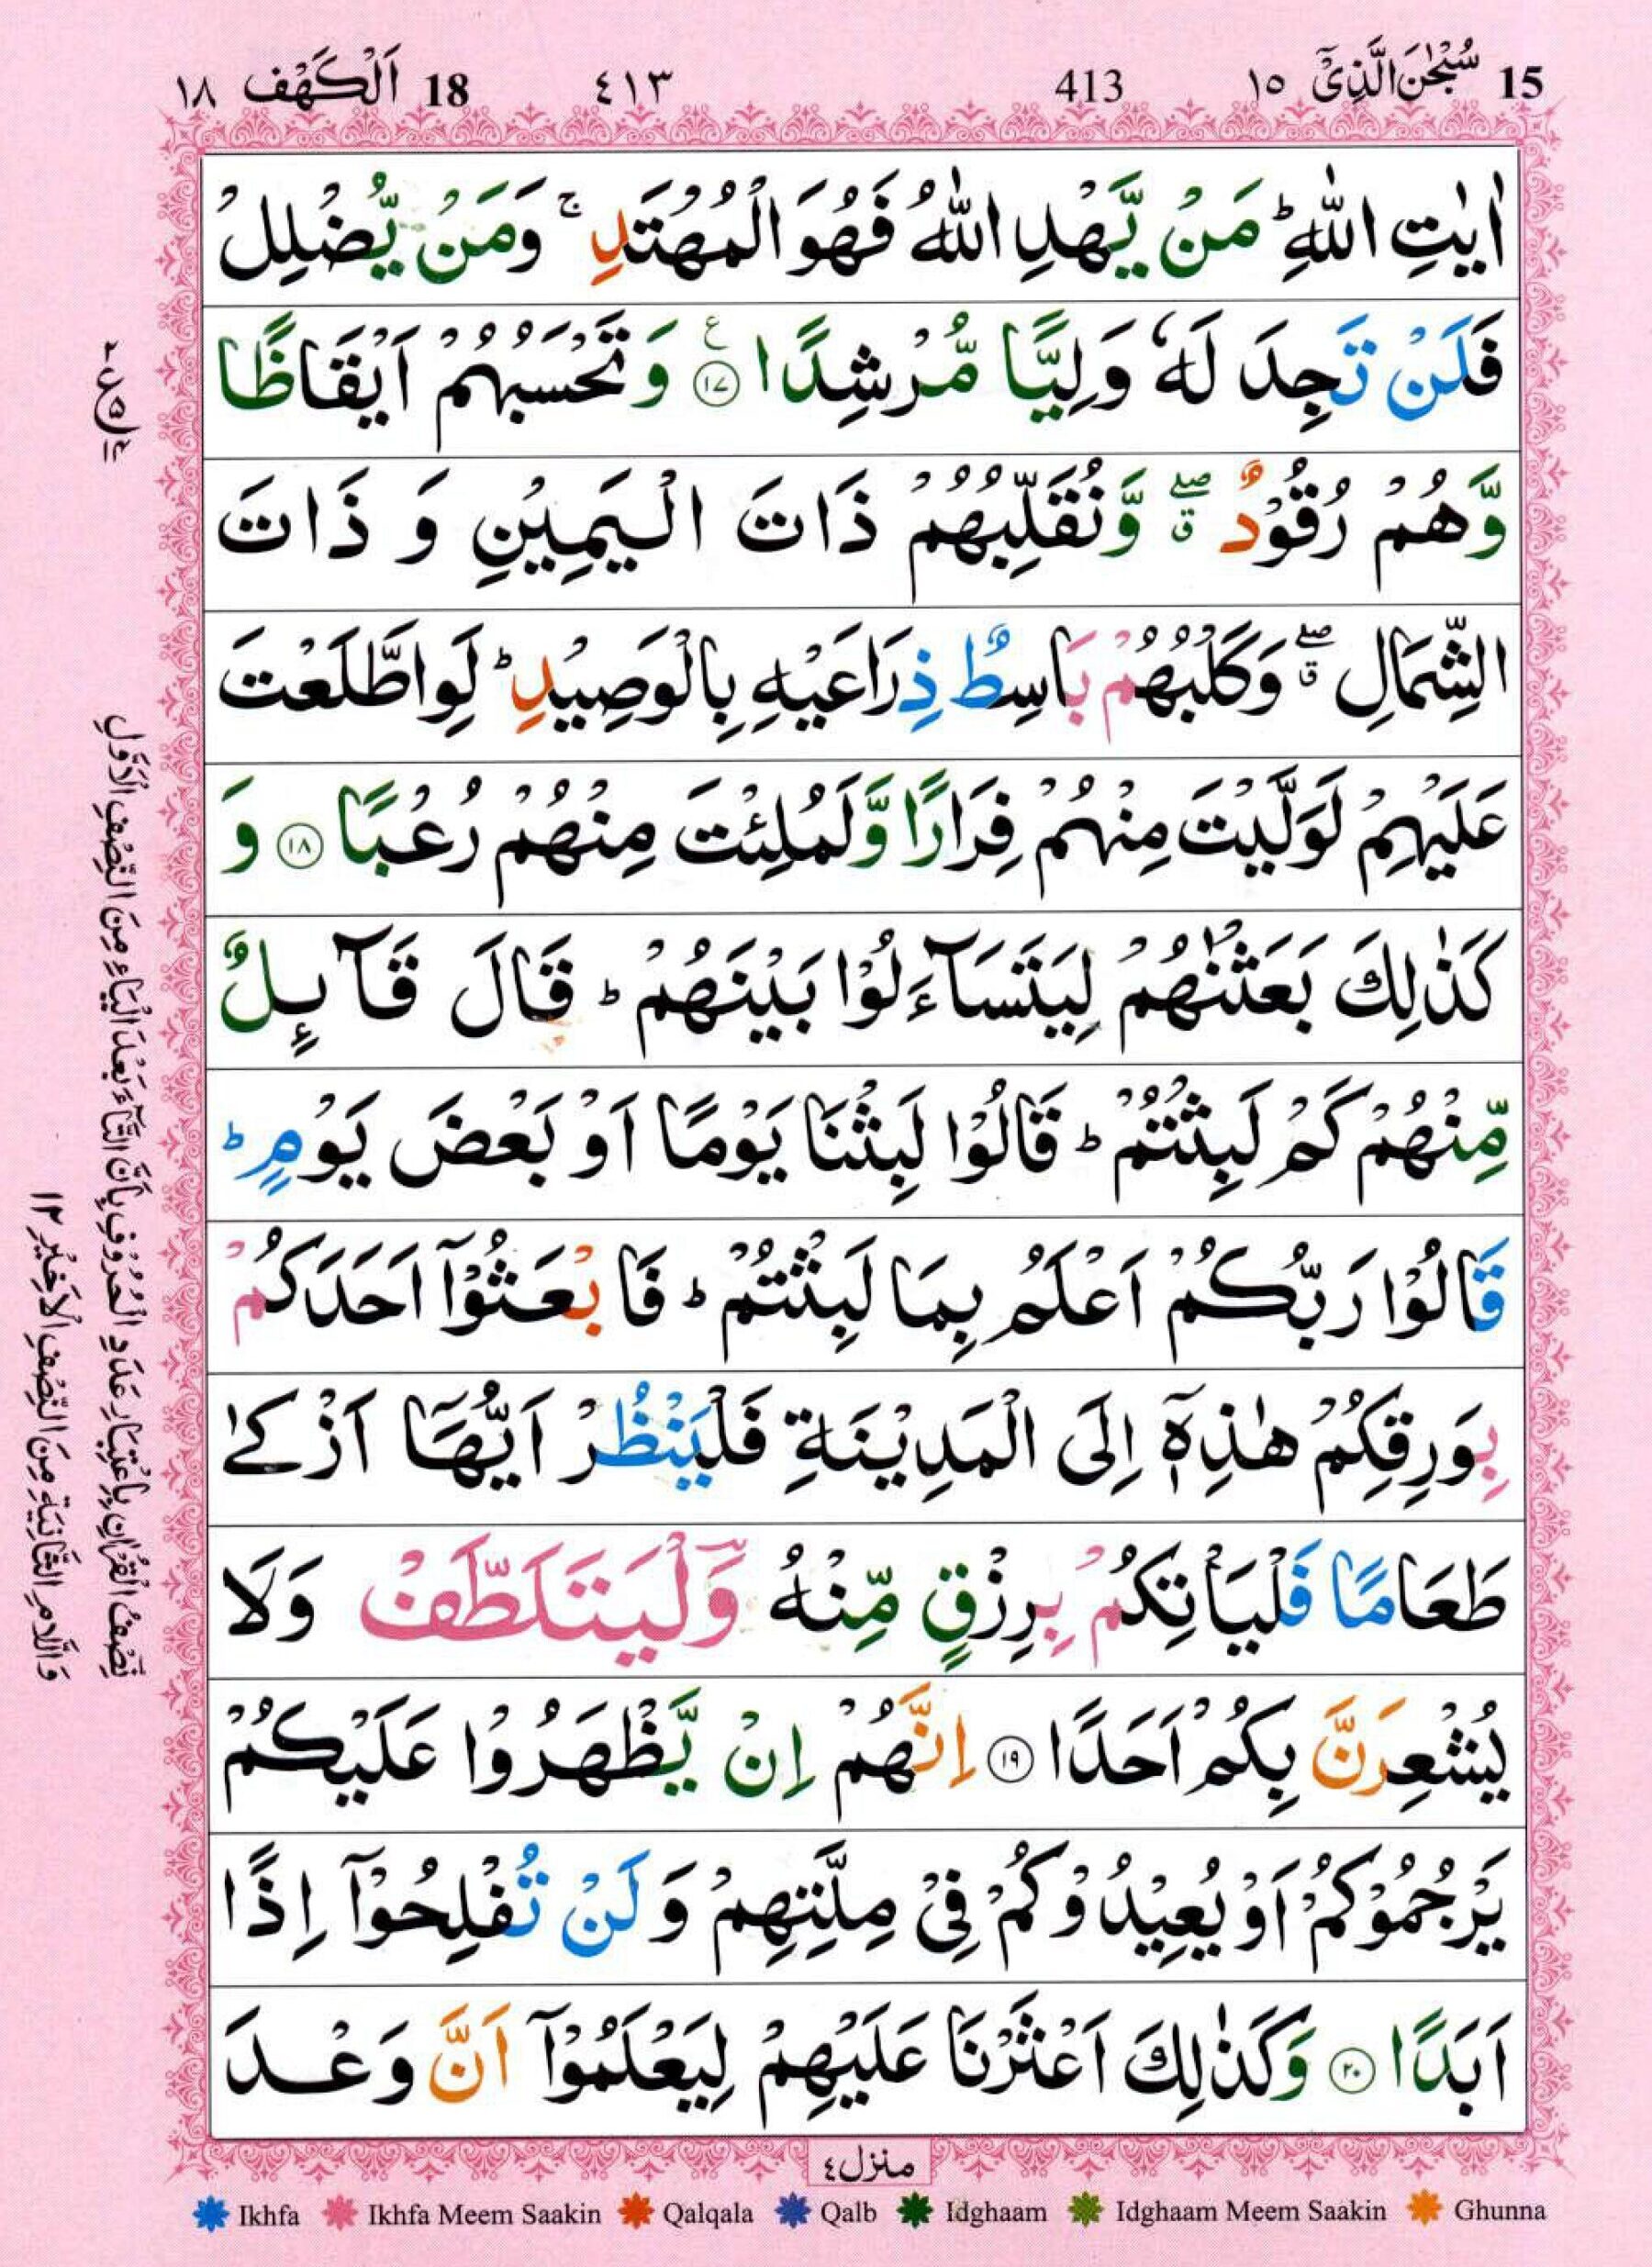 15 سُبْحٰنَ الَّذِیْۤ ١٥ 413 ٤١٣ 18 اَلْكَهْف ١٨
اٰیٰتِ اللّٰهِ ؕ مَنْ یَّهْدِ اللّٰهُ فَهُوَ الْمُهْتَدِ ۚ وَمَنْ یُّضْلِلْ
فَلَنْ تَجِدَ لَهٗ وَلِیًّا مُّرْشِدًا ۧ ﴿١٧﴾ وَتَحْسَبُهُمْ اَیْقَاظًا
وَّهُمْ رُقُوْدٌ ۖۗ وَّنُقَلِّبُهُمْ ذَاتَ الْیَمِیْنِ وَ ذَاتَ
الشِّمَالِ ۖۗ وَكَلْبُهُمْ بَاسِطٌ ذِرَاعَیْهِ بِالْوَصِیْدِ ؕ لَوِ اطَّلَعْتَ
عَلَیْهِمْ لَوَلَّیْتَ مِنْهُمْ فِرَارًا وَّلَمُلِئْتَ مِنْهُمْ رُعْبًا ﴿١٨﴾ وَ
كَذٰلِكَ بَعَثْنٰهُمْ لِیَتَسَآءَلُوْا بَیْنَهُمْ ؕ قَالَ قَآىِٕلٌ
مِّنْهُمْ كَمْ لَبِثْتُمْ ؕ قَالُوْا لَبِثْنَا یَوْمًا اَوْ بَعْضَ یَوْمٍ ؕ
قَالُوْا رَبُّكُمْ اَعْلَمُ بِمَا لَبِثْتُمْ ؕ فَابْعَثُوْۤا اَحَدَكُمْ
بِوَرِقِكُمْ هٰذِهٖۤ اِلَى الْمَدِیْنَةِ فَلْیَنْظُرْ اَیُّهَاۤ اَزْكٰى
طَعَامًا فَلْیَاْتِكُمْ بِرِزْقٍ مِّنْهُ وَلْیَتَلَطَّفْ وَلَا
یُشْعِرَنَّ بِكُمْ اَحَدًا ﴿١٩﴾ اِنَّهُمْ اِنْ یَّظْهَرُوْا عَلَیْكُمْ
یَرْجُمُوْكُمْ اَوْ یُعِیْدُوْكُمْ فِیْ مِلَّتِهِمْ وَلَنْ تُفْلِحُوْۤا اِذًا
اَبَدًا ﴿٢٠﴾ وَكَذٰلِكَ اَعْثَرْنَا عَلَیْهِمْ لِیَعْلَمُوْۤا اَنَّ وَعْدَ
نِصْفُ الْقُرْاٰنِ بِاعْتِبَارِ عَدَدِ الْحُرُوْفِ بِاَنَّ التَّآءَ بَعْدَ الْیَاءِ مِنَ النِّصْفِ الْاَوَّلِ
وَاللَّامِ الثَّانِیَةِ مِنَ النِّصْفِ الْاَخِیْرِ ١٢
منزل ٤
Ikhfa Ikhfa Meem Saakin Qalqala Qalb Idghaam Idghaam Meem Saakin Ghunna